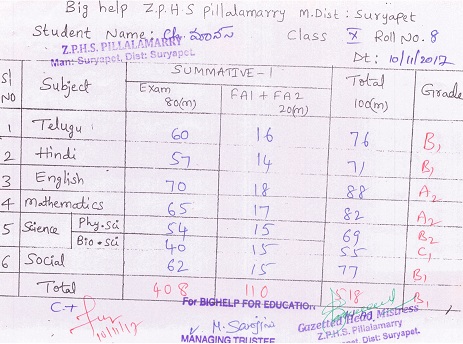 Big help Z.P.H.S Pillalamarry M.Dist : Suryapet
Student Name : Ch. మానస Class X Roll No. 8
Z.P.H.S. PILLALAMARRY
Man: Suryapet, Dist: Suryapet. Dt : 10/11/2017
Sl NO Subject SUMMATIVE - I Total 100(m) Grade
Exam 80(m) FA1 + FA2 20(m)
1 Telugu 60 16 76 B1
2 Hindi 57 14 71 B1
3 English 70 18 88 A2
4 Mathematics 65 17 82 A2
5 Science Phy.sci 54 15 69 B2
Bio.sci 40 15 55 C1
6 Social 62 15 77 B1
Total 408 110 518 B1
C.T
10/11/17
For BIGHELP FOR EDUCATION
MANAGING TRUSTEE
Gazetted Head Mistress
Z.P.H.S. Pillalamarry
Dist: Suryapet.